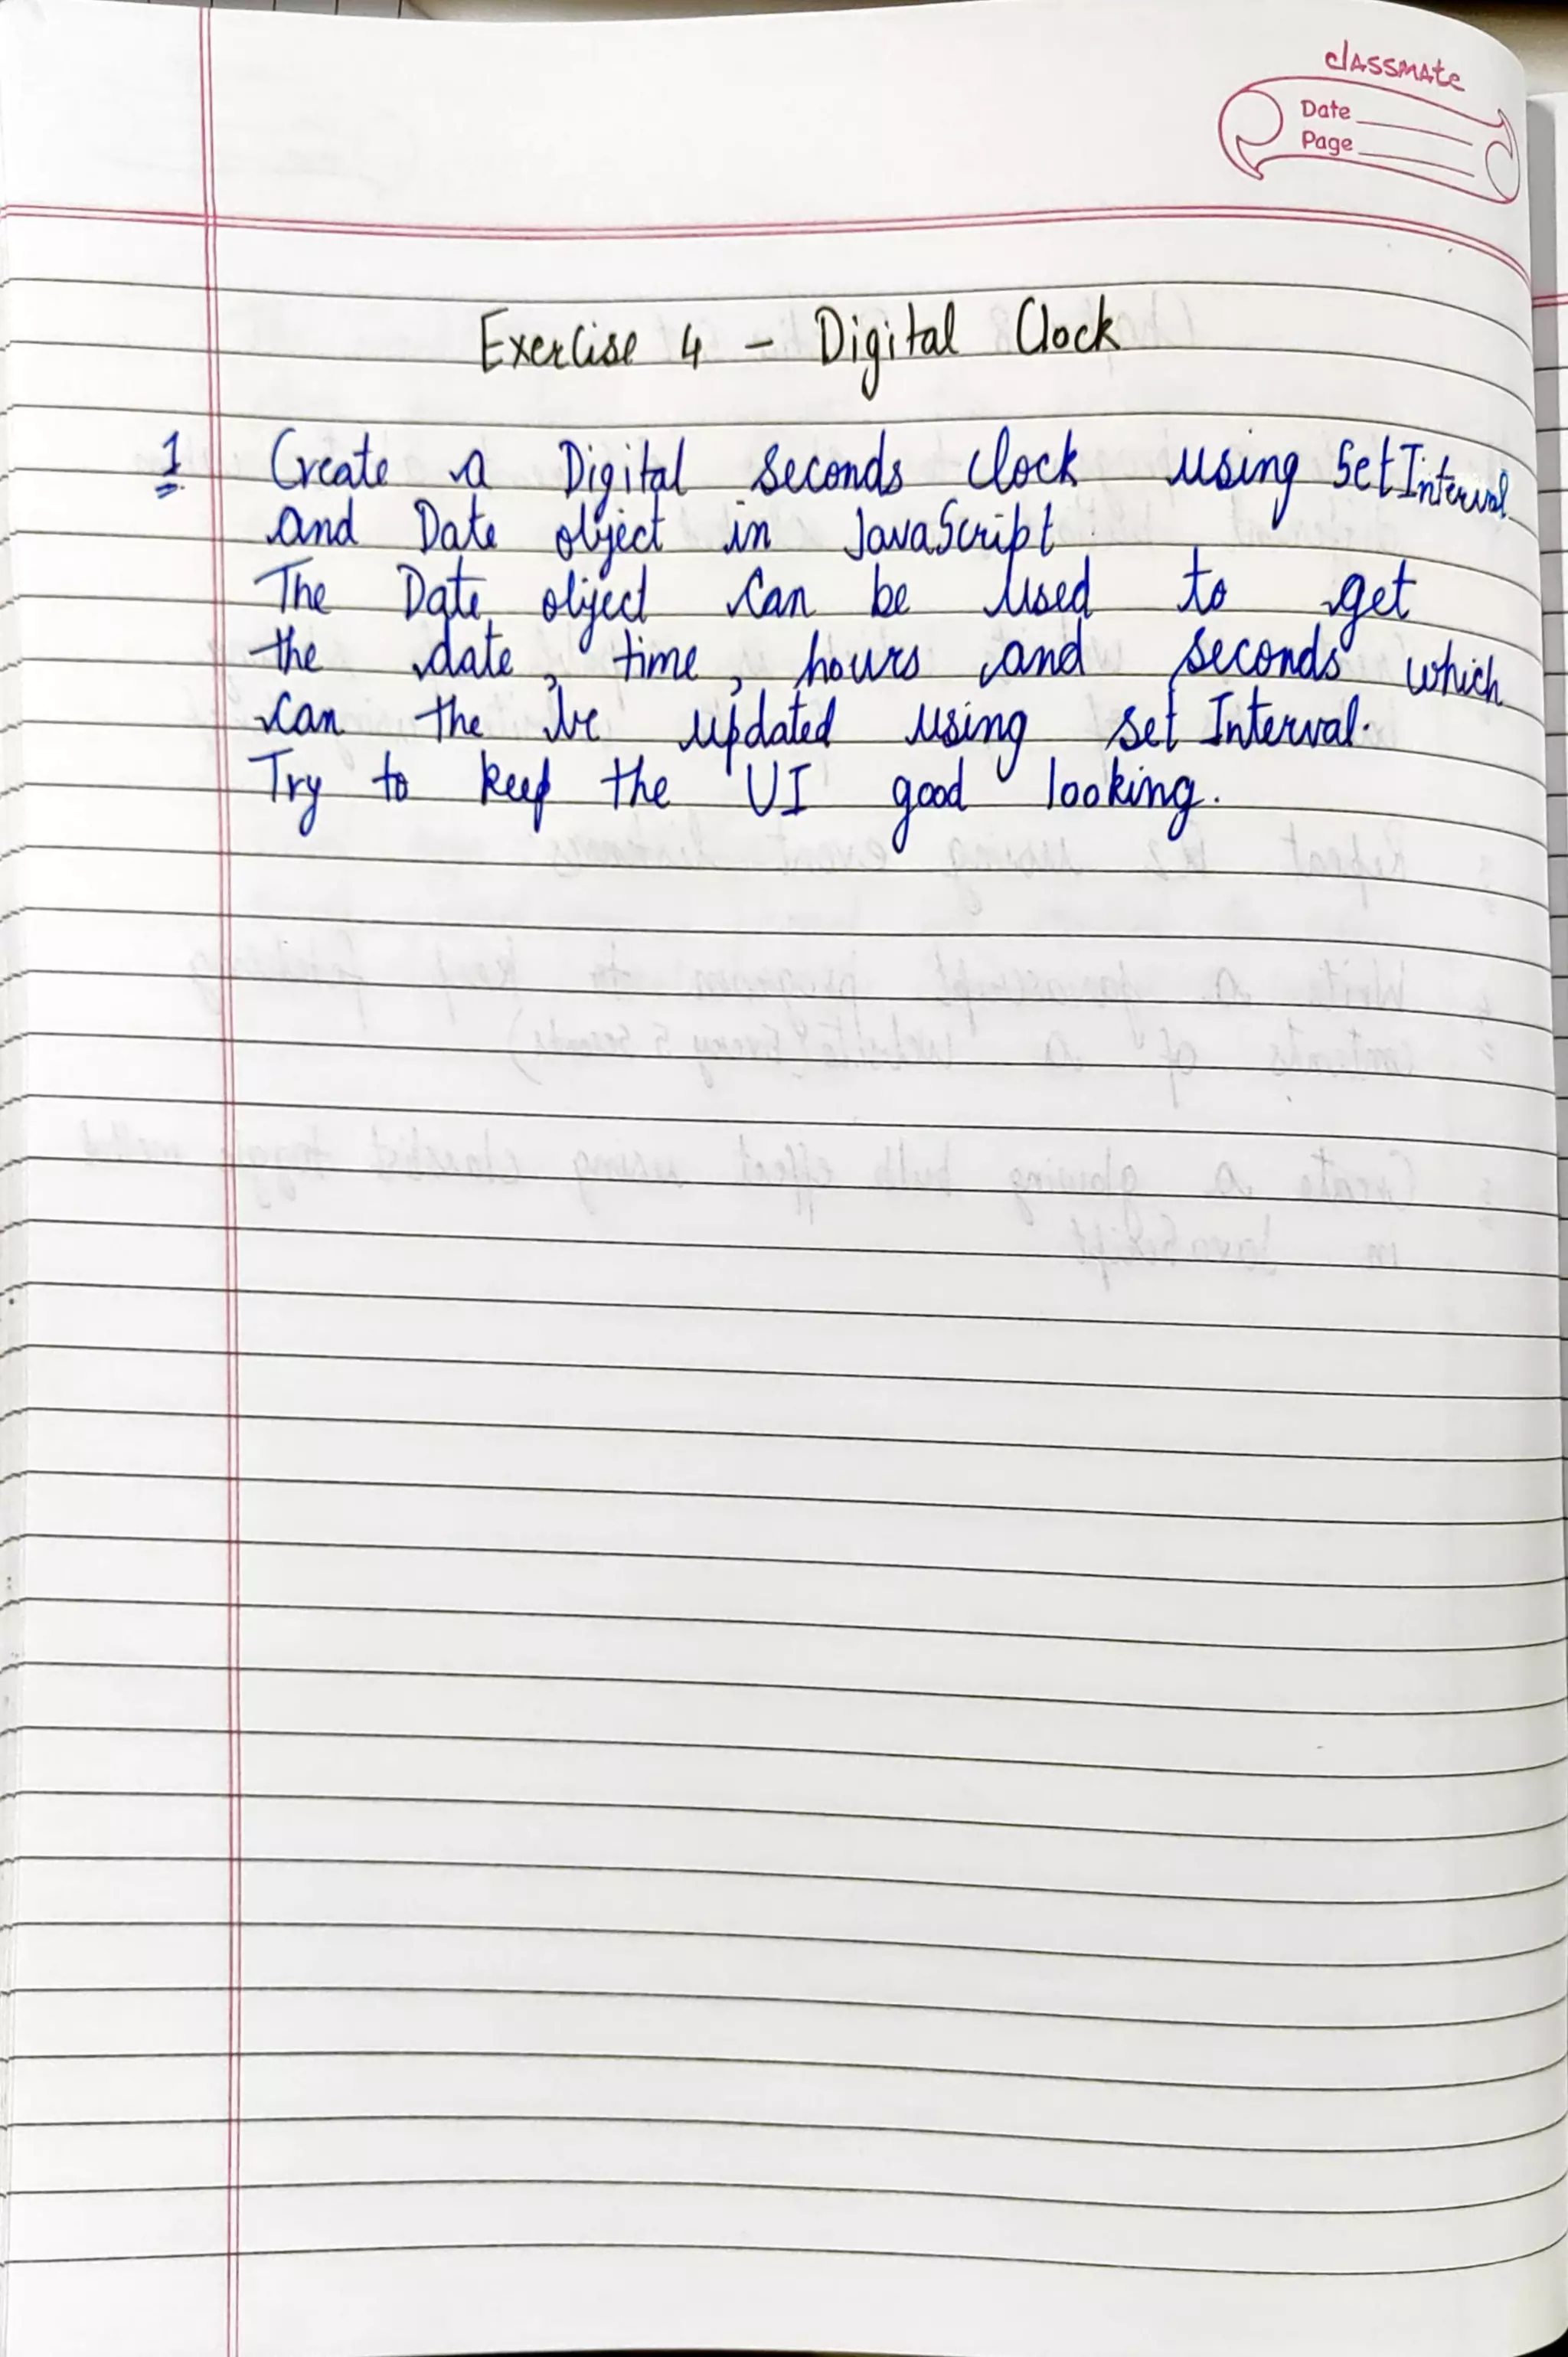 classmate
Date
Page
Exercise 4 - Digital Clock
1 Create a Digital seconds clock using SetInterval
and Date object in JavaScript
The Date object can be used to get
the date, time, hours and seconds which
can the be updated using set Interval.
Try to keep the UI good looking.